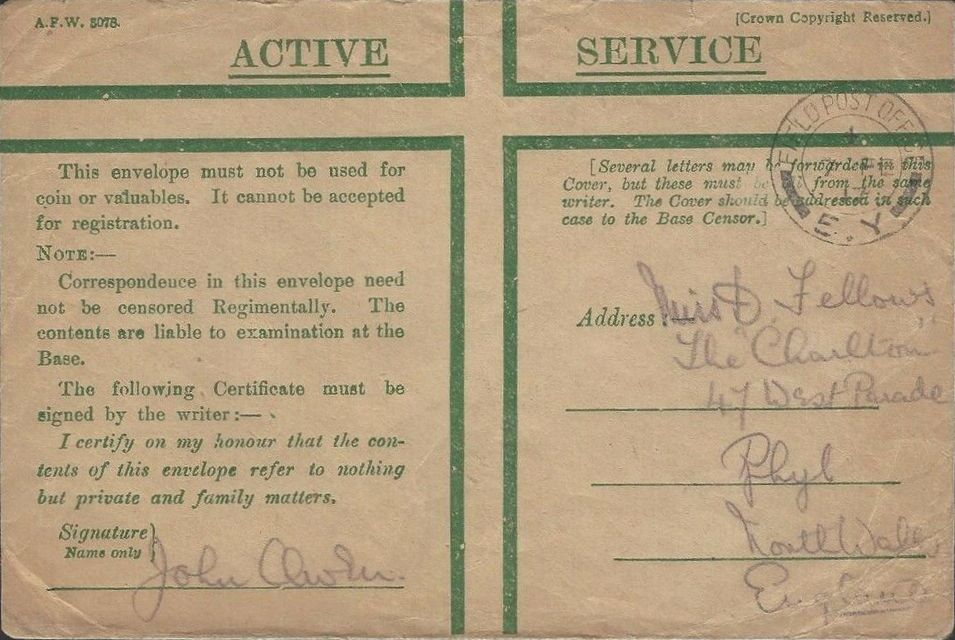 A.F.W. 3078.
[Crown Copyright Reserved.]
ACTIVE SERVICE
This envelope must not be used for
coin or valuables. It cannot be accepted
for registration.
NOTE:—
Correspondence in this envelope need
not be censored Regimentally. The
contents are liable to examination at the
Base.
The following Certificate must be
signed by the writer:—
I certify on my honour that the con-
tents of this envelope refer to nothing
but private and family matters.
Signature
Name only
John Owen.
FIELD POST OFFICE
E.Y
[Several letters may be forwarded in this
Cover, but these must be from the same
writer. The Cover should be addressed in such
case to the Base Censor.]
Address:—
Miss D. Fellows
"The Charlton"
47 West Parade
Rhyl
North Wales
England